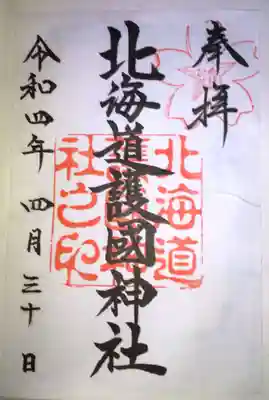 奉拝
北海道護國神社
令和四年 四月三十日
北海道
社之印